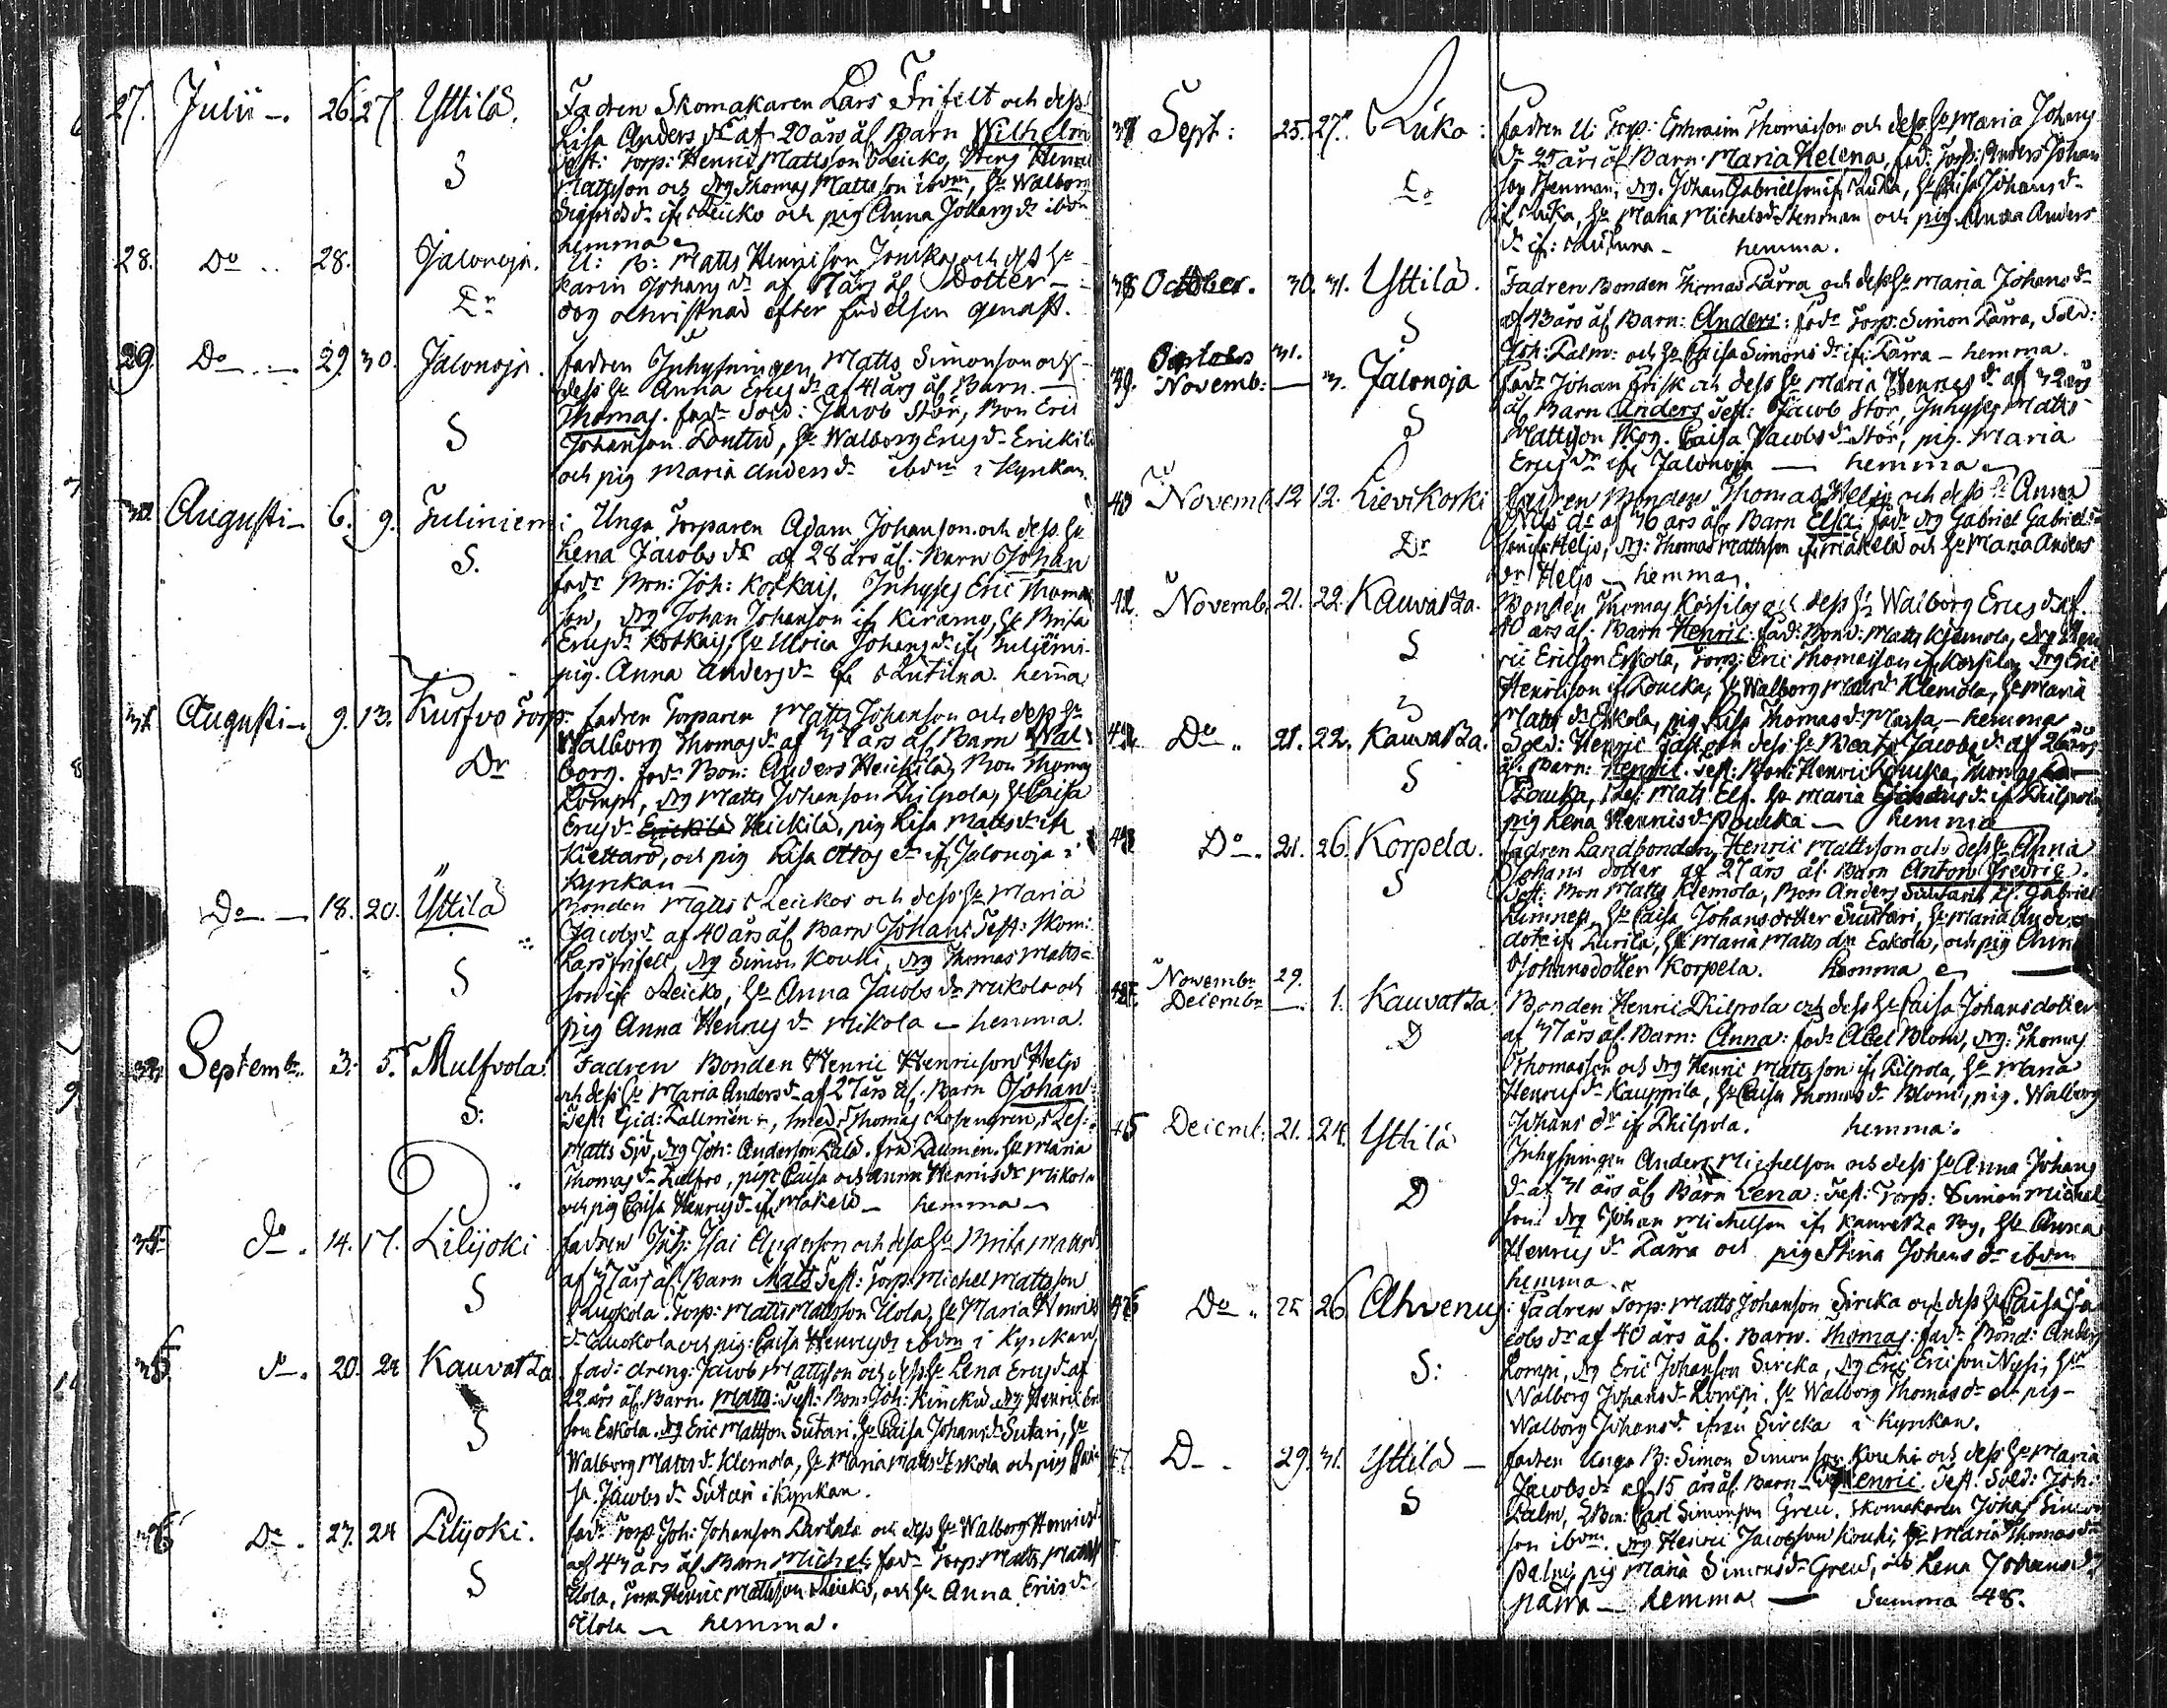 27. Julii - 26. 27. Yttilä. Fadren Skomakaren Lars Frifelt och dess
Lisa Anders dr af 20 års ål. Barn Wilhelm
S Test: Torp: Henric Mattsson Leicko, Henric
Mattsson och drg Thomas Mattsson ibdm, H. Walborg
Sigfrids dr if. Leicko och pig Anna Johans dr ibdm
hemma
28. Do .. 28. Jalonoja. U: B: Matts Henricson Jouckas och dess H.
Dr Karin Johans dr af års ål. Dotter -
dog ochristnad efter födelsen genast.
29. Do - 29. 30. Jalonoja. Fadren Inhysningen Matts Simonson och
dess H. Anna Erics dr af 41 års ål. Barn -
S Thomas. fadr Sold: Jacob Stör, Bon Eric
Johanson Lonttu, H. Walborg Erics dr Erickilä
och pig Maria Anders dr ibdm i Kyrckan.
30. Augusti - 6. 9. Juliniemi Unga Torparen Adam Johanson och dess H.
S. Lena Jacobs dr af 28 års ål. Barn Johan
fadr Bon: Joh: Korkais, Inhyses Eric Thomas
son, drg Johan Johanson if. Keramo, H. Brita
Erics dr Korkais, H. Ulrica Johans dr if.
pig. Anna Anders dr if. hemma
31. Augusti - 9. 13. Kurfvo Torp. Fadren Torparen Matts Johanson och dess H.
Dr Walborg Thomas dr af 37 års ål. Barn Wal
borg. fadr Bon: Anders Heickilä, Bon Thomas
Lompi, drg Matts Johanson Kilpola, H. Caisa
Erics dr Erickilä Heickilä, pig Lisa Matts dr if.
Kiettarö, och pig Lisa Ottos dr if. Jalonoja i
Kyrckan -
Do - 18. 20. Yttilä Bonden Matts Leickos och dess H. Maria
Jacobs dr af 40 års ål. Barn Johan: Test: Skom:
S Lars Frifelt, drg Simon Kouki, drg Thomas Matts
son if. Leicko, H. Anna Jacobs dr Mikola och
pig Anna Henrics dr Mikola - hemma.
Septembr. 3. 5. Mulfvola. Fadren Bonden Henric Henricson Heljo
S: och dess H. Maria Anders dr af 27 års ål. Barn Johan:
Test: Gid: Lallmén, Smed: Thomas Rosengren,
Matts Sjö, drg Joh: Anderson Lalä. från Laumén. H. Maria
Thomas dr, pige Caisa och Anna Henrics dr Mikola
och pig Caisa Henrics dr if. Mäkelä - hemma -
do. 14. 17. Lilijoki Fadren Isai Anderson och dess H. Brita Matts dr
S af 37 års ål. Barn Matts Test: Torp: Michel Mattsson
Luokola. Torp: Matts Mattsson Ulola, H. Maria Henrics
dr Luokola och pig: Caisa Henrics dr ibdm i Kyrckan,
35 do. 20. 24 Kauvatza Fad: dreng: Jacob Mattsson och dess H. Lena Erics dr af
S 22 års ål. Barn. Matts: Test: Bon: Joh: drg Henric Eric
son Eskola. drg Eric Mattsson Sutari. H. Caisa Johans dr Sutari, H.
Walborg Matts dr Klemola, H. Maria Matts dr Eskola och pig
sa. Jacobs dr Sutari i Kyrckan.
36 Do. 27. 24 Lilijoki. Fadr Torp Joh: Johanson och dess H. Walborg Henrics dr
S af 43 års ål. Barn Michel: fadr Torp: Matts Mattss
Ulola, Torp Henric Mattsson Leicko, och H. Anna Erics dr
Ulola - hemma.
37 Sept: 25. 27. Luka: Fadren U: Torp: Ephraim Thomasson och dess H. Maria Johans
Dr dr 25 års ål. Barn: Maria Helena, fad: Torp: Anders Johan
son Stenman, drg. Johan Gabrielson if. Luka, H. Caisa Johans dr
if. Luka, H. Maria Michels dr Stenman och pig. Anna Anders
dr if: - hemma.
38 October. 30. 31. Yttilä. Fadren Bonden Thomas Lärra och dess H. Maria Johans dr
S af 43 års ål. Barn: Anders: fadr Torp: Simon Lärra, Sold:
Joh: Palm: och H. Caisa Simons dr if. Lärra - hemma.
39. October 31. Novemb: - 3. Jalonoja Fadr Johan Frisk och dess H. Maria Henrics dr af 32 års
S ål. Barn Anders Test: Jacob Stör, Inhyses Matts
Mattsson Skog. Caisa Jacobs dr Stör, pig. Maria
Erics dr if. Jalonoja - hemma
40 Novemb. 12 12. Lievikoski Fadren Bonden Thomas Heljo och dess H. Anna
Dr Nils dr af 36 års ål. Barn Elsa: fadr drg Gabriel Gabriel
son if. Heljo, drg: Thomas Mattsson if. Mäkelä och H. Maria Anders
dr Heljo - hemma.
Novemb. 21. 22. Kauvatza. Bonden Thomas Korsilas och dess H. Walborg Erics dr af
S 40 års ål. Barn Henric: fad: Bon: Matts Klemola, drg Hen
ric Ericson Eskola, Torp: Eric Thomasson if. Korsila, drg Eric
Henricson if. Loucka, H. Walborg Matts dr Klemola, H. Maria
Matts dr Eskola, pig Lisa Thomas dr - hemma
Do .. 21. 22. Kauvatza. Sold: Henric och dess H. Beata Jacobs dr af 26 års
S ål. Barn: Henric. Test: Bon: Henric Loucka, Thomas
Loucka, Matts Elf. H. Maria dr if. Kilpola
pig Lena Henrics dr Loucka - hemma
Do -. 21. 26. Korpela. Fadren Landbonden, Henric Mattsson och dess H. Anna
S Johans dotter af 27 års ål. Barn Anton Fredric.
Test: Bon Matts Klemola, Bon Anders Suutari, Gabriel
H. Caisa Johans dotter Suutari, H. Maria Anders
dotr if. Lurila, H. Maria Matts dr Eskola, och pig Anna
Johansdotter Korpela. hemma
Novembr 29. Decembr - 1. Kauvatza. Bonden Henric Kilpola och dess H. Caisa Johansdotter
D af 37 års ål. Barn: Anna: fadr Abel Blom, drg: Thomas
Thomasson och drg Henric Mattsson if. Kilpola, H. Maria
Henrics dr Kauppila, H. Caisa Thomas dr Blom, pig. Walborg
Johans dr if Kilpola. hemma.
45 Decemb: 21. 24. Yttilä Inhysningen Anders Michelson och dess H. Anna Johans
D dr af 31 års ål. Barn Lena: Test: Torp: Simon Michel
son drg Johan Michelson if. Kauvatza By, H. Anna
Henrics dr Lärra och pig Stina Johans dr ibdm
hemma.
46 Do .. 25 26. Ahvenus: Fadren Torp: Matts Johanson Sircka och dess H. Caisa Ja
S: cobs dr af 40 års ål. Barn. Thomas: fadr Bond: Anders
Lompi, drg Eric Johanson Sircka, drg Eric Ericson Nysi, H.
Walborg Johans dr Lompi. H. Walborg Thomas dr pig -
Walborg Johans dr ifrån Sircka i Kyrckan.
47 D - . 29. 31. Yttilä - Fadren Unga B: Simon Simonson Kouki och dess H. Maria
S Jacobs dr af 15 års ål. Barn - Henric Test. Sold: Joh:
Palm, Bon: Carl Simonson Greu. Skomakaren Johan Simon
son ibdm. drg Henric Jacobson Kouki, H. Maria Thomas dr
Palm, pig Maria Simons dr Greu, och Lena Johans dr
- hemma - Summa 48.